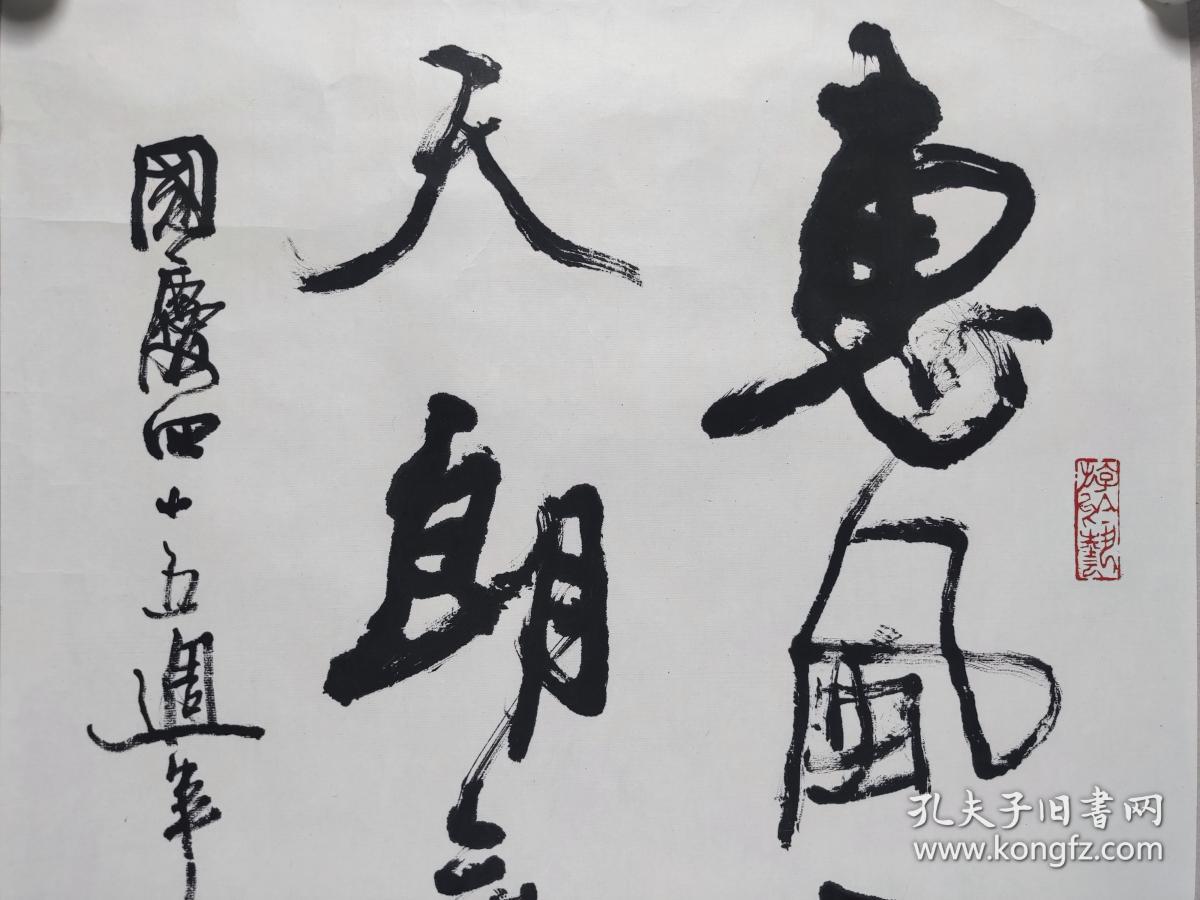 惠風
天朗
國慶四十五週年
孔夫子旧书网
www.kongfz.com